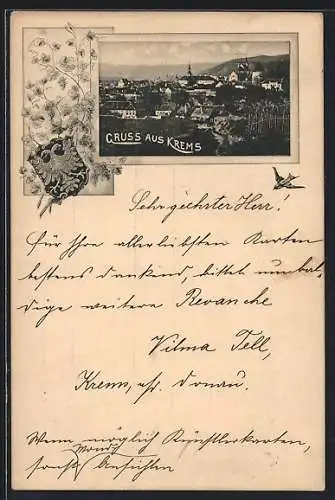 GRUSS AUS KREMS
Sehr geehrter Herr!
für Ihre allerliebsten Karten
bestens dankend, bittet um bal-
dige weitere Revanche
Vilma Tell,
Krems, a/d. Donau.
Wenn möglich Künstlerkarten,
Mondsch
sonst Ansichten